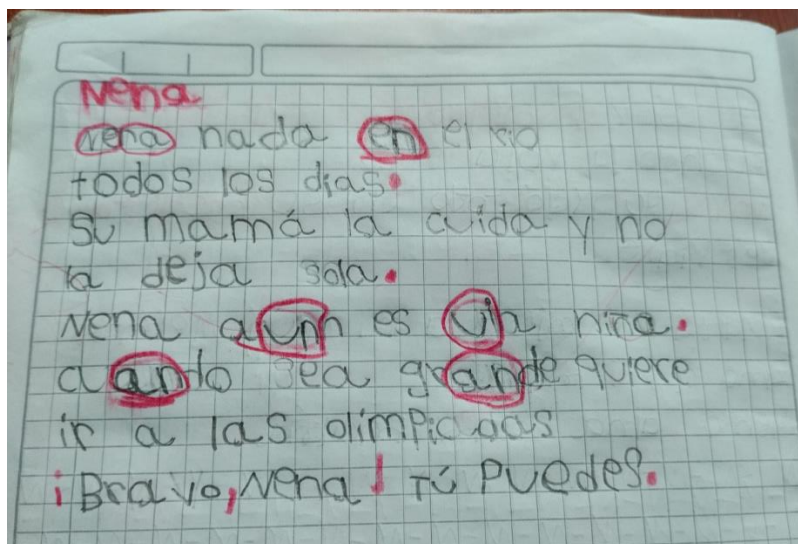 Nena
Nena nada en el rio
todos los días.
Su mamá la cuida y no
la deja sola.
Nena aunn es una niña.
cuando sea grande quiere
ir a las olimpiadas
¡Bravo, Nena! Tú Puedes.